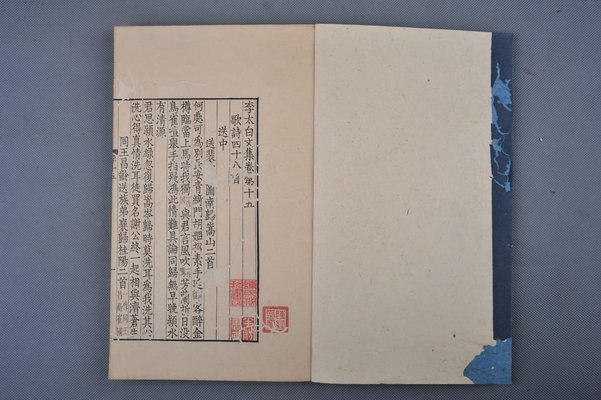 李太白文集卷第十五
歌詩四十八首
送中
送裴 圖南歸嵩山二首
何處可為別長安青綺門胡姬招素手延客醉金
樽臨當上馬時我獨與君言風吹芳蘭折日沒
鳥雀喧舉手指 此情難具論同歸無早晚潁水
有清源
君思潁水綠忽復歸嵩岑歸時莫洗耳為我洗其心
洗心得真情洗耳徒買名謝公終一起相與濟蒼生
同王昌齡送族弟襄歸桂陽二首